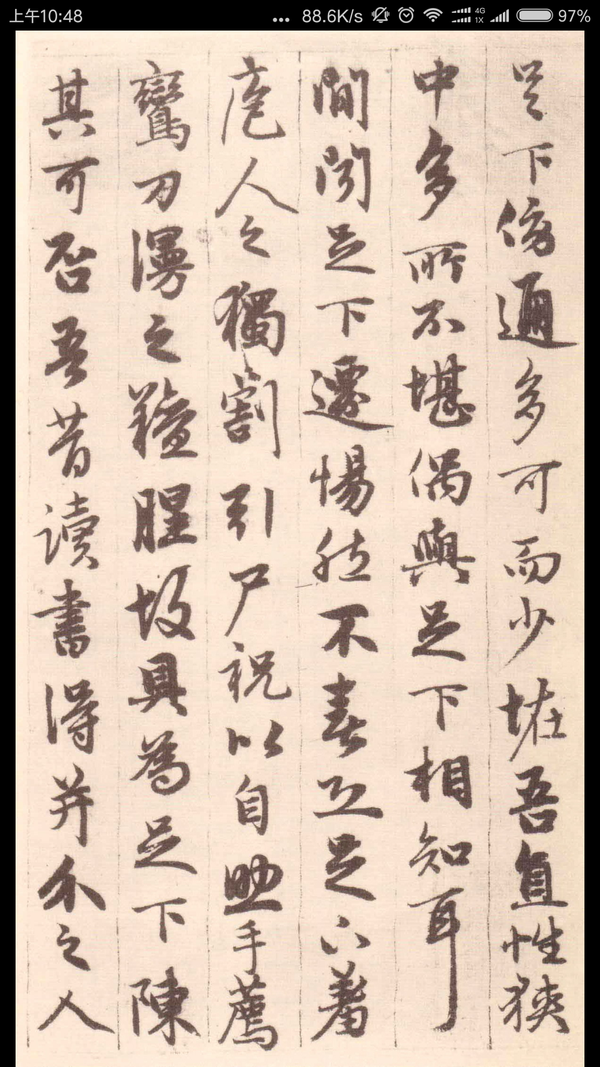 上午10:48 ... 88.6K/s 4G 1X 97%
足下傍通多可而少恠吾直性狹
中多所不堪偶與足下相知耳
間聞足下遷惕然不喜恐足下羞
庖人之獨割引尸祝以自助手薦
鸞刀漫之羶腥故具為足下陳
其可否吾昔讀書得并介之人